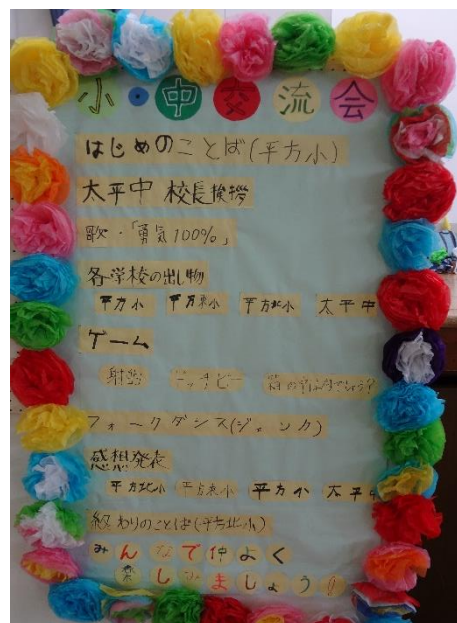 小・中交流会
はじめのことば(平方小)
太平中 校長挨拶
歌・「勇気100%」
各学校の出し物
平方小 平方東小 平方北小 太平中
ゲーム
射的
フォークダンス(ジェンカ)
感想発表
平方北小 平方東小 平方小 太平中
終わりのことば(平方北小)
みんなで仲よく
楽しみましょう!!